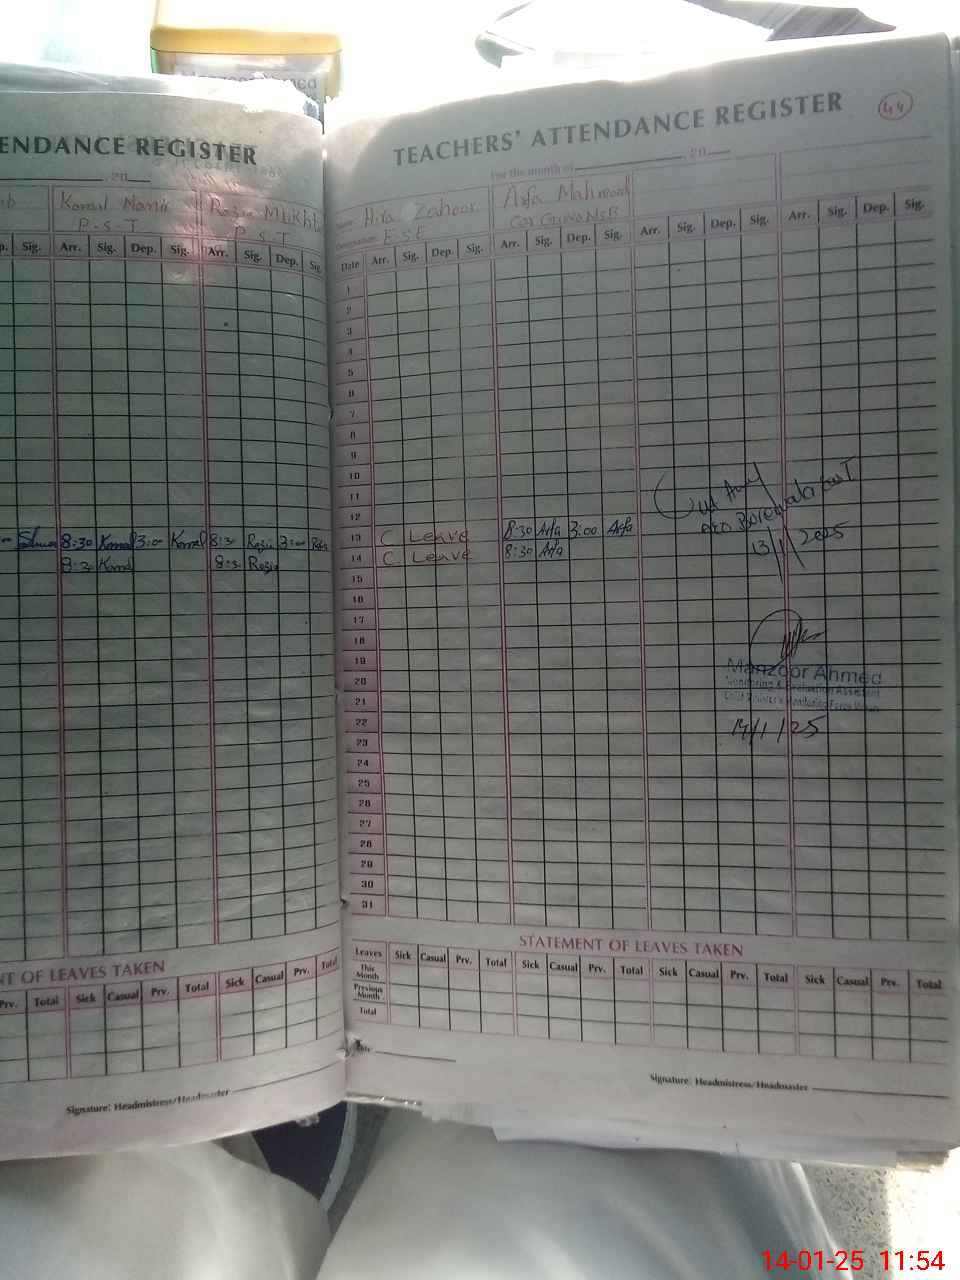 ENDANCE REGISTER
20
Komal Nazir
Razia Mukht
P.S.T
P.S.T
p. Sig. Arr. Sig. Dep. Sig. Arr. Sig. Dep. Sig.
8:30 Komal 3:00 Komal 8:30 Razia 3:00
8:30 Komal 8:30 Razia
NT OF LEAVES TAKEN
Prv. Total Sick Casual Prv. Total Sick Casual Prv. Total
Signature: Headmistress/Headmaster
TEACHERS' ATTENDANCE REGISTER
44
For the month of 20
Hira Zahoor
Arfa Mahmood
E.S.E
Date Arr. Sig. Dep. Sig. Arr. Sig. Dep. Sig. Arr. Sig. Dep. Sig. Arr. Sig. Dep. Sig.
1
2
3
4
5
6
7
8
9
10
11
12
13 C Leave 8:30 Arfa 3:00 Arfa
14 C Leave 8:30 Arfa
15
16
17
18
19
20
21
22
23
24
25
26
27
28
29
30
31
13/1/2025
Manzoor Ahmed
Monitoring & Evaluation Assistant
14/1/25
STATEMENT OF LEAVES TAKEN
Leaves Sick Casual Prv. Total Sick Casual Prv. Total Sick Casual Prv. Total Sick Casual Prv. Total
This Month
Previous Month
Total
Signature: Headmistress/Headmaster
14-01-25 11:54